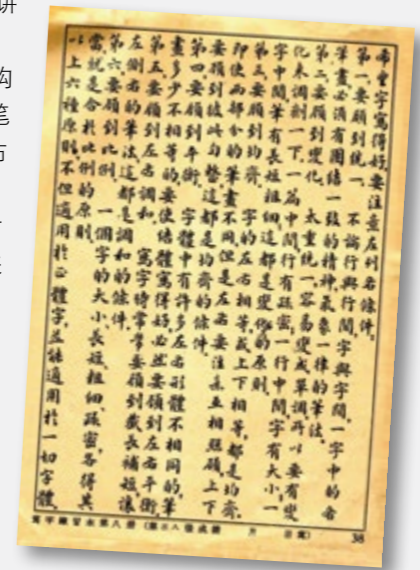 希望字寫得好，要注意左列各條件：
第一，要顧到統一。 不論行與行間，字與字間，一字中的各
筆畫必須有團結一致的精神，氣象一律的筆法。
第二，要顧到變化。 太重統一，容易變成單調，所以要有變
化來調劑一下。一篇中間行有疏密，一行中間字有大小，一
字中間筆有長短粗細，這都是變化的原則。
第三，要顧到均齊。 字的左右相等，或上下相等，都是均齊。
即使兩部分的筆畫不同，但是左右要注意互相照顧，上下
要顧到彼此勻整，這都是均齊的條件。
第四，要顧到平衡。 字體中有許多左右形體不相同的，筆
畫多少不相等的，要使結體寫得好，必然要顧到左右平衡。
第五，要顧到左右調和。 寫字時常常要顧到截長補短，讓
左側右的筆法，這都是調和的條件。
第六，要顧到比例。 一個字的大小、長短、粗細、疏密，各得其
當，就是合於比例的原則。
以上六種原則，不但適用於正體字，並能適用於一切字體。
寫字練習本第八冊 (第三八張成績 月 日寫)
38
构
笔